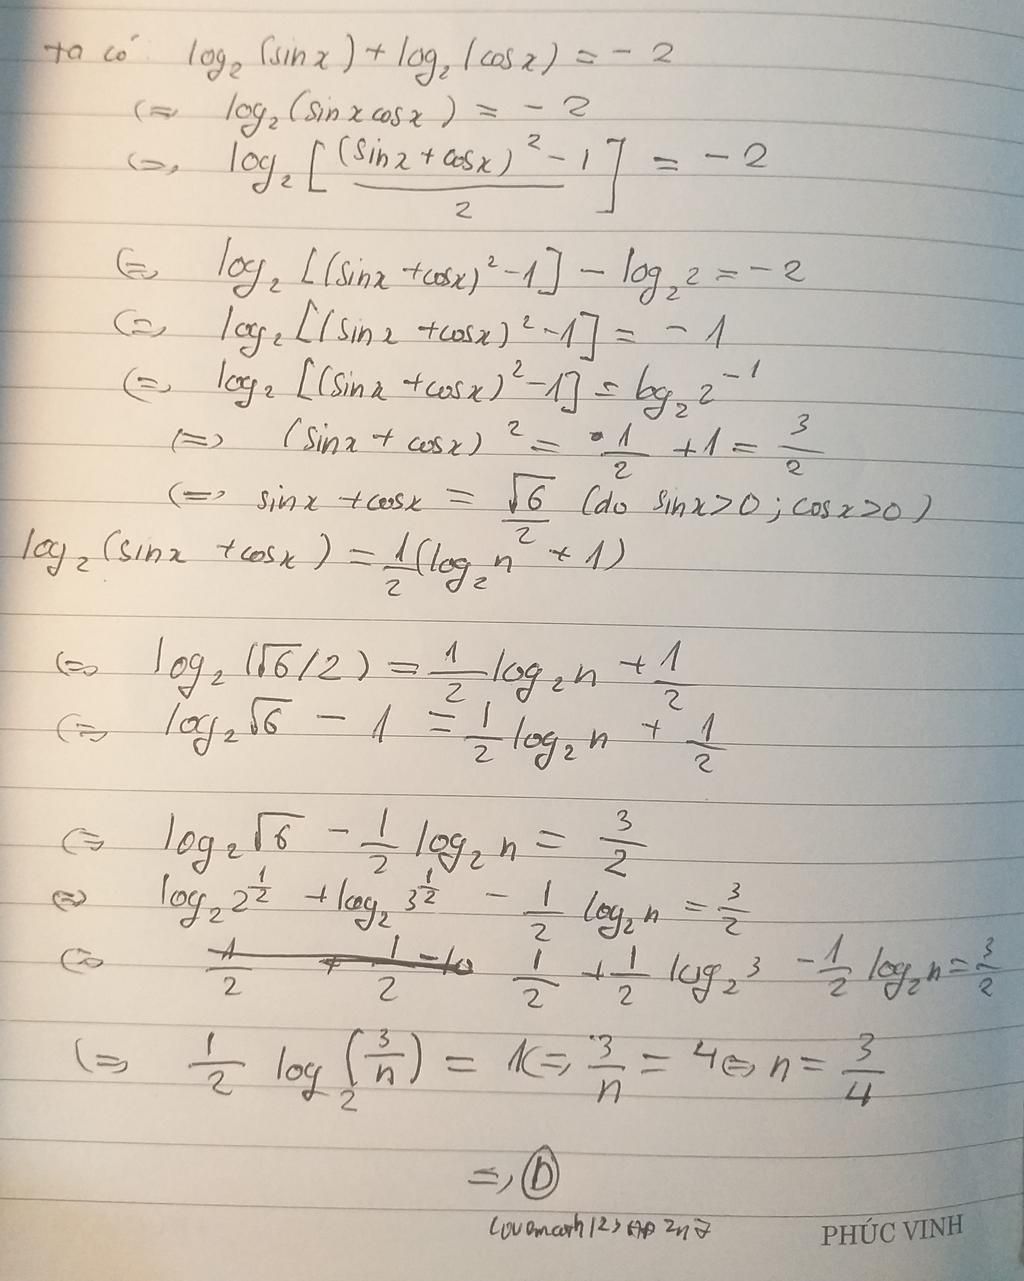 ta có log₂(sinx) + log₂(cosx) = -2
(=) log₂(sinxcosx) = -2
(=) log₂[((sinx + cosx)² - 1)/2] = -2
(=) log₂[(sinx + cosx)² - 1] - log₂2 = -2
(=) log₂[(sinx + cosx)² - 1] = -1
(=) log₂[(sinx + cosx)² - 1] = log₂2⁻¹
(=) (sinx + cosx)² = 1/2 + 1 = 3/2
(=) sinx + cosx = √6/2 (do sinx>0; cosx>0)
log₂(sinx + cosx) = 1/2(log₂n + 1)
(=) log₂(√6/2) = 1/2 log₂n + 1/2
(=) log₂√6 - 1 = 1/2 log₂n + 1/2
(=) log₂√6 - 1/2 log₂n = 3/2
(=) log₂2^(1/2) + log₂3^(1/2) - 1/2 log₂n = 3/2
(=) 1/2 + 1/2 log₂3 - 1/2 log₂n = 3/2
(=) 1/2 log₂(3/n) = 1 (=) 3/n = 4 (=) n = 3/4
=) D
PHÚC VINH